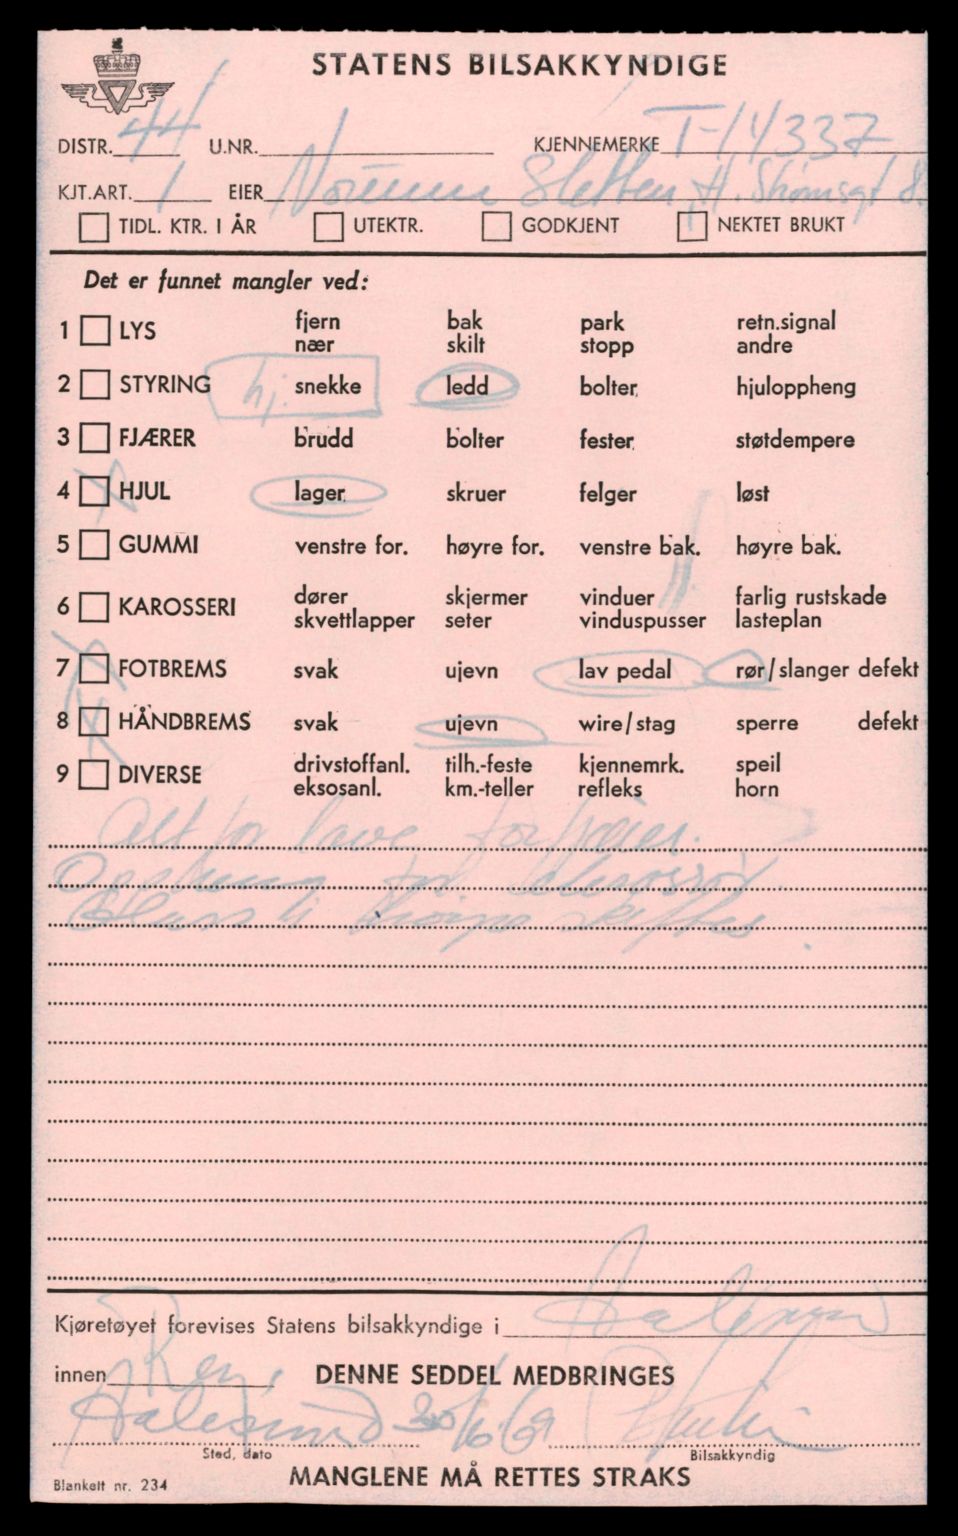 STATENS BILSAKKYNDIGE
DISTR. 44 U.NR. KJENNEMERKE T-14337
KJT.ART. 1 EIER Sletten, H. Strømsgt 8.
TIDL. KTR. I ÅR UTEKTR. GODKJENT NEKTET BRUKT
Det er funnet mangler ved:
1 LYS fjern bak park retn.signal
nær skilt stopp andre
2 STYRING hj. snekke ledd bolter hjuloppheng
3 FJÆRER brudd bolter fester støtdempere
4 HJUL lager skruer felger løst
5 GUMMI venstre for. høyre for. venstre bak. høyre bak.
6 KAROSSERI dører skjermer vinduer farlig rustskade
skvettlapper seter vinduspusser lasteplan
7 FOTBREMS svak ujevn lav pedal rør/slanger defekt
8 HÅNDBREMS svak ujevn wire/stag sperre defekt
9 DIVERSE drivstoffanl. tilh.-feste kjennemrk. speil
eksosanl. km.-teller refleks horn
Alt for lave forfjærer.
for
Glass skiftes
Kjøretøyet forevises Statens bilsakkyndige i Aalesund
innen DENNE SEDDEL MEDBRINGES
Aalesund 30/6 69
Sted, dato Bilsakkyndig
Blankett nr. 234 MANGLENE MÅ RETTES STRAKS